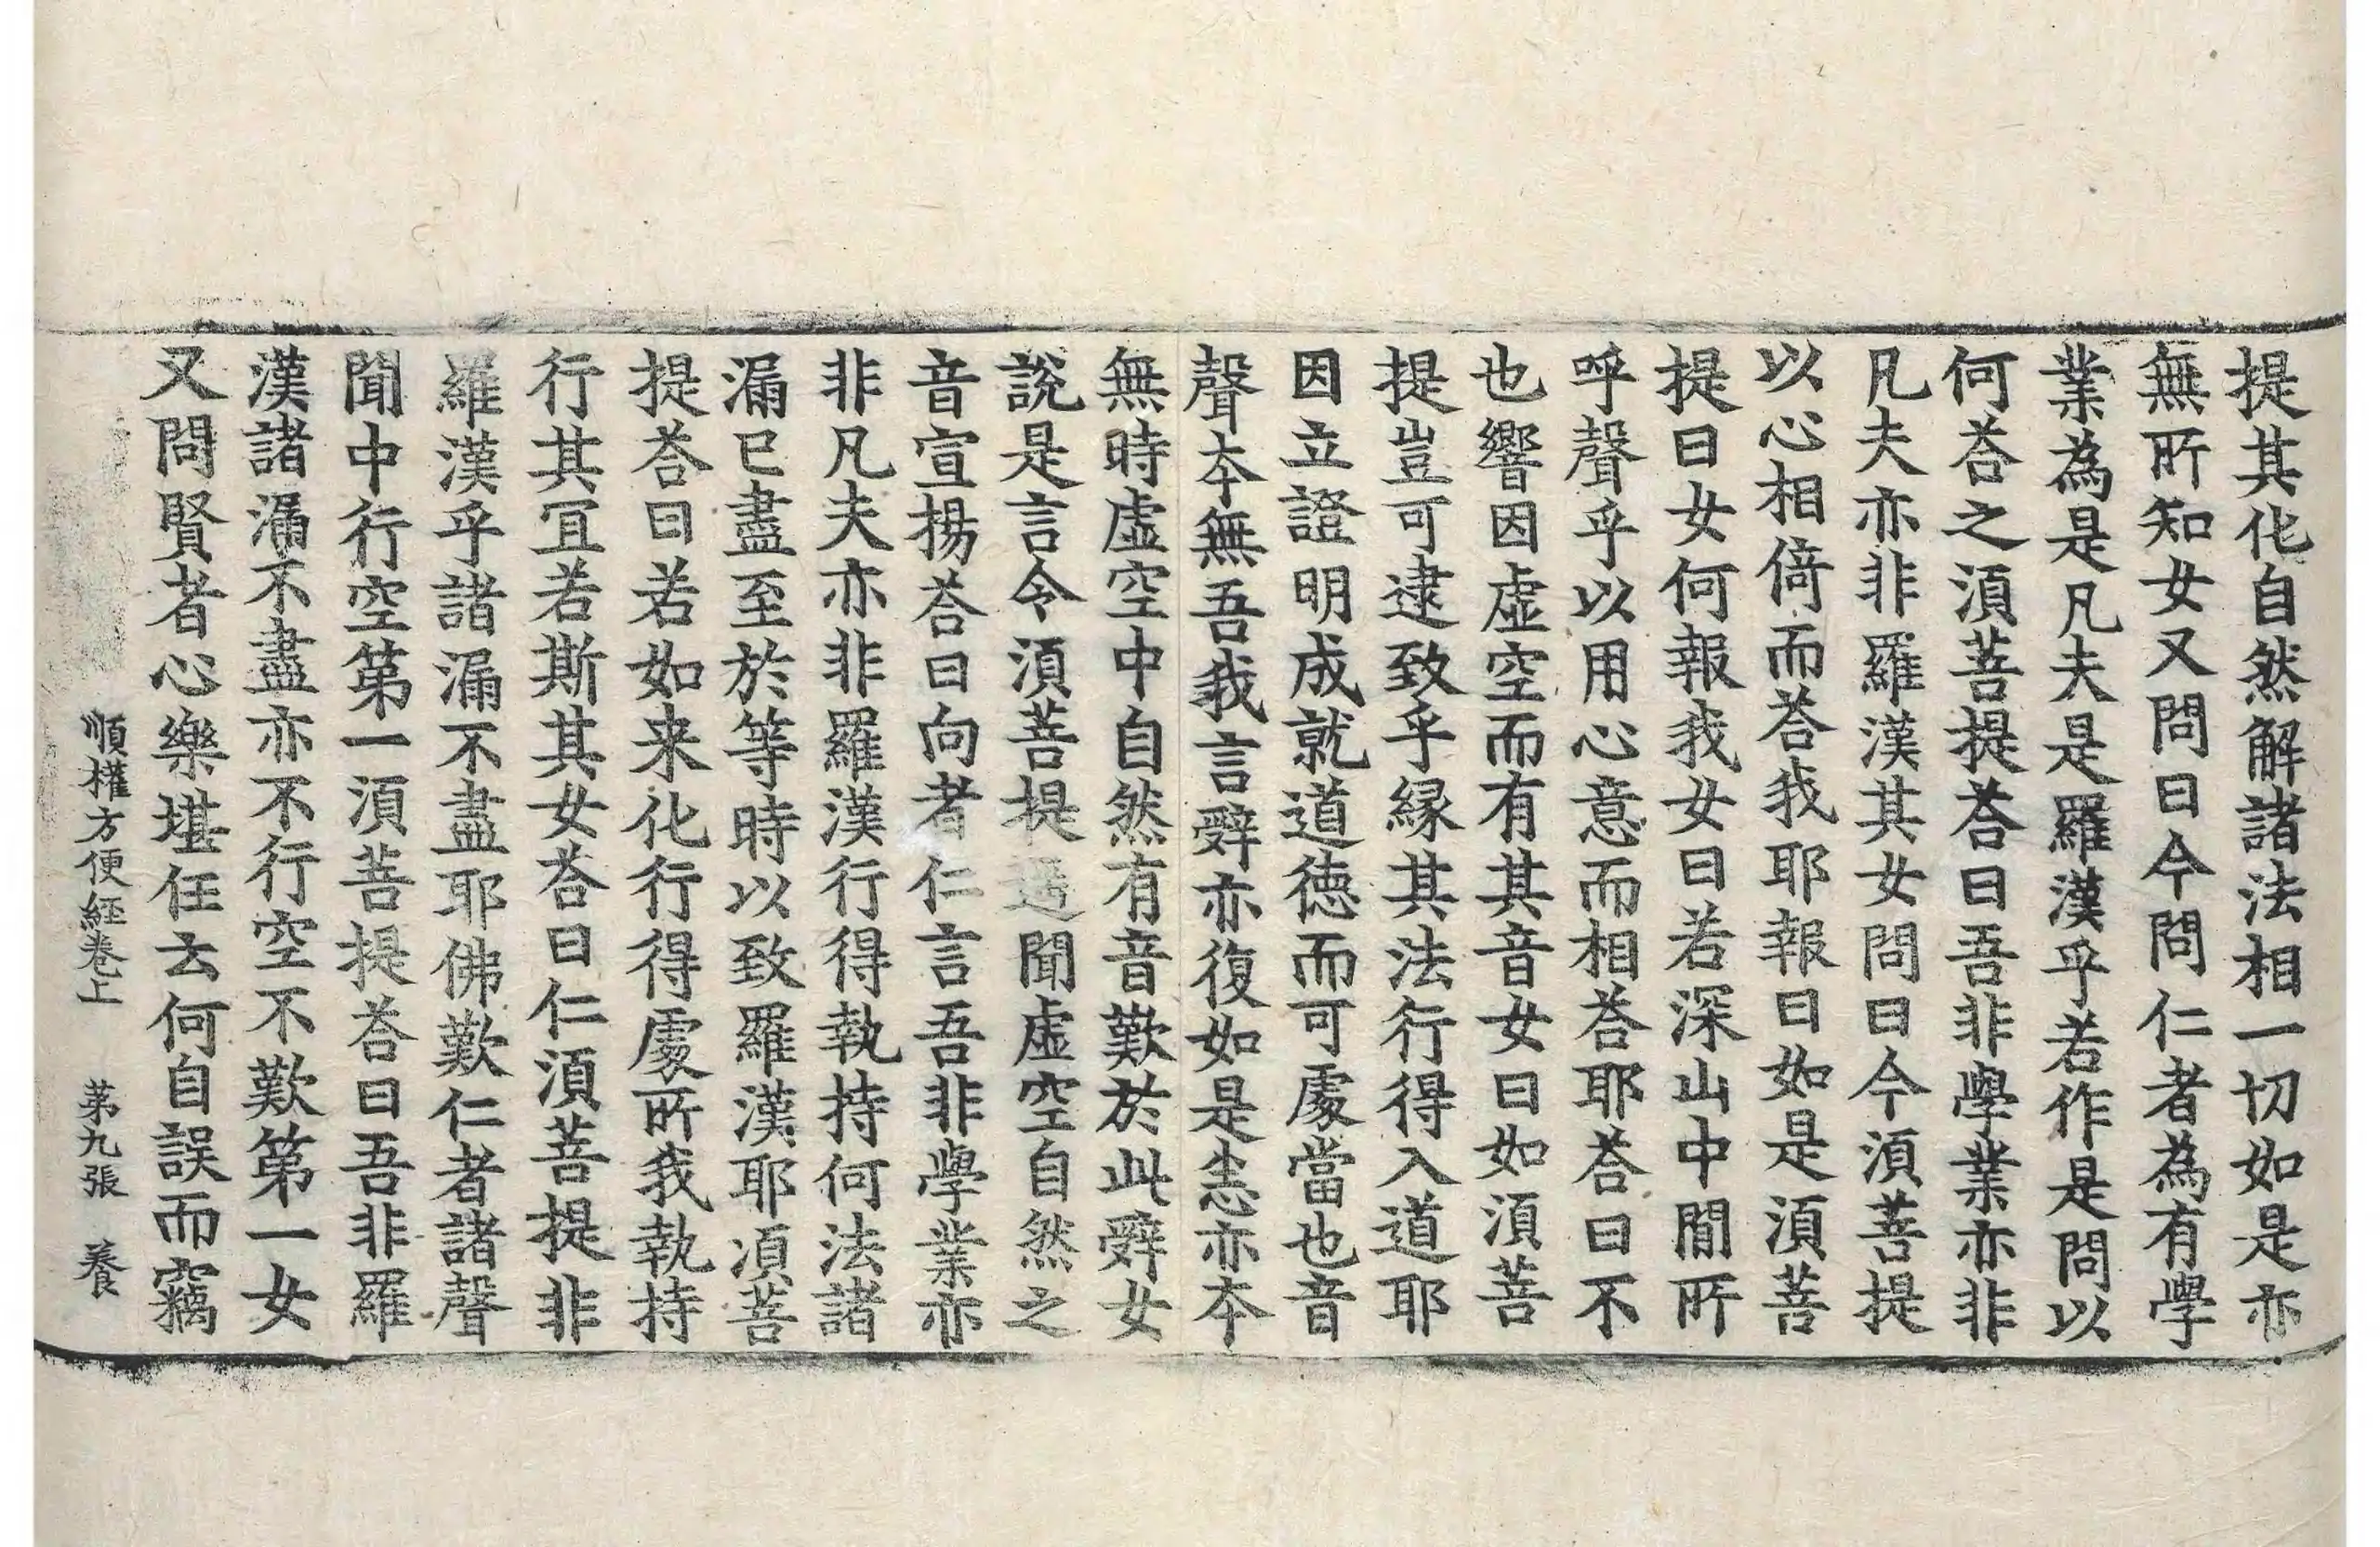 提其化自然解諸法相一切如是亦
無所知女又問曰今問仁者為有學
業為是凡夫是羅漢乎若作是問以
何荅之須菩提荅曰吾非學業亦非
凡夫亦非羅漢其女問曰今須菩提
以心相倚而荅我耶報曰如是須菩
提曰女何報我女曰若深山中閒所
呼聲乎以用心意而相荅耶荅曰不
也響因虛空而有其音女曰如須菩
提豈可逮致乎緣其法行得入道耶
因立證明成就道德而可處當也音
聲本無吾我言辭亦復如是恚亦本
無時虛空中自然有音歎於此辭女
說是言令須菩提適聞虛空自然之
音宣揚荅曰向者仁言吾非學業亦
非凡夫亦非羅漢行得執持何法諸
漏已盡至於等時以致羅漢耶須菩
提荅曰若如来化行得處所我執持
行其冝若斯其女荅曰仁須菩提非
羅漢乎諸漏不盡耶佛歎仁者諸聲
聞中行空第一須菩提荅曰吾非羅
漢諸漏不盡亦不行空不歎第一女
又問賢者心樂堪任去何自誤而竊
順權方便經卷上 苐九張 養